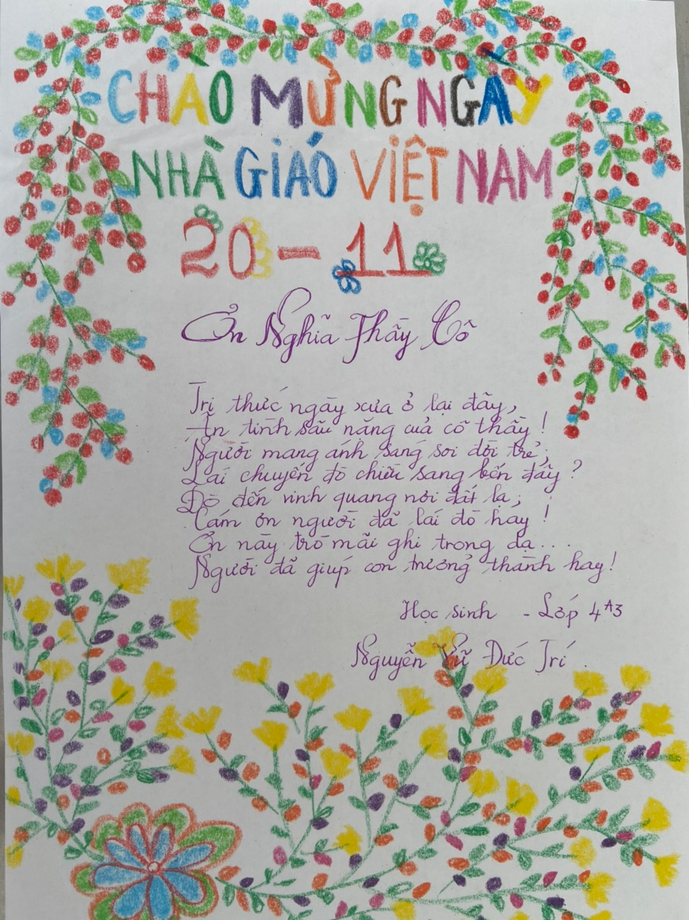 CHÀO MỪNG NGÀY
NHÀ GIÁO VIỆT NAM
20 - 11
Ơn Nghĩa Thầy Cô
Tri thức ngày xưa ở lại đây,
Ân tình sâu nặng của cô thầy!
Người mang ánh sáng soi đời trẻ;
Lái chuyến đò chiều sang bến đấy?
Đò đến vinh quang nơi đất lạ;
Cám ơn người đã lái đò hay!
Ơn này trò mãi ghi trong dạ...
Người đã giúp con trưởng thành hay!
Học sinh - Lớp 4A3
Nguyễn Vũ Đức Trí.